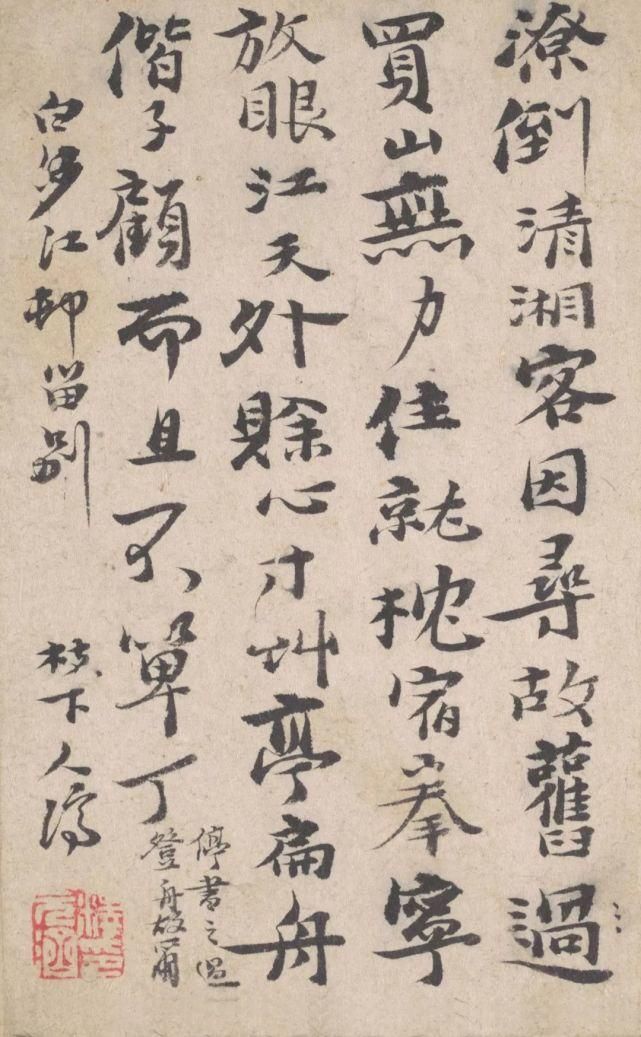 潦倒清湘客因尋故舊過
買山無力住就枕宿拳寧
放眼江天外賖心寸艸亭扁舟
偕子顧而且不單丁
停書之過
登舟故爾
白沙江邨留別 枝下人濟